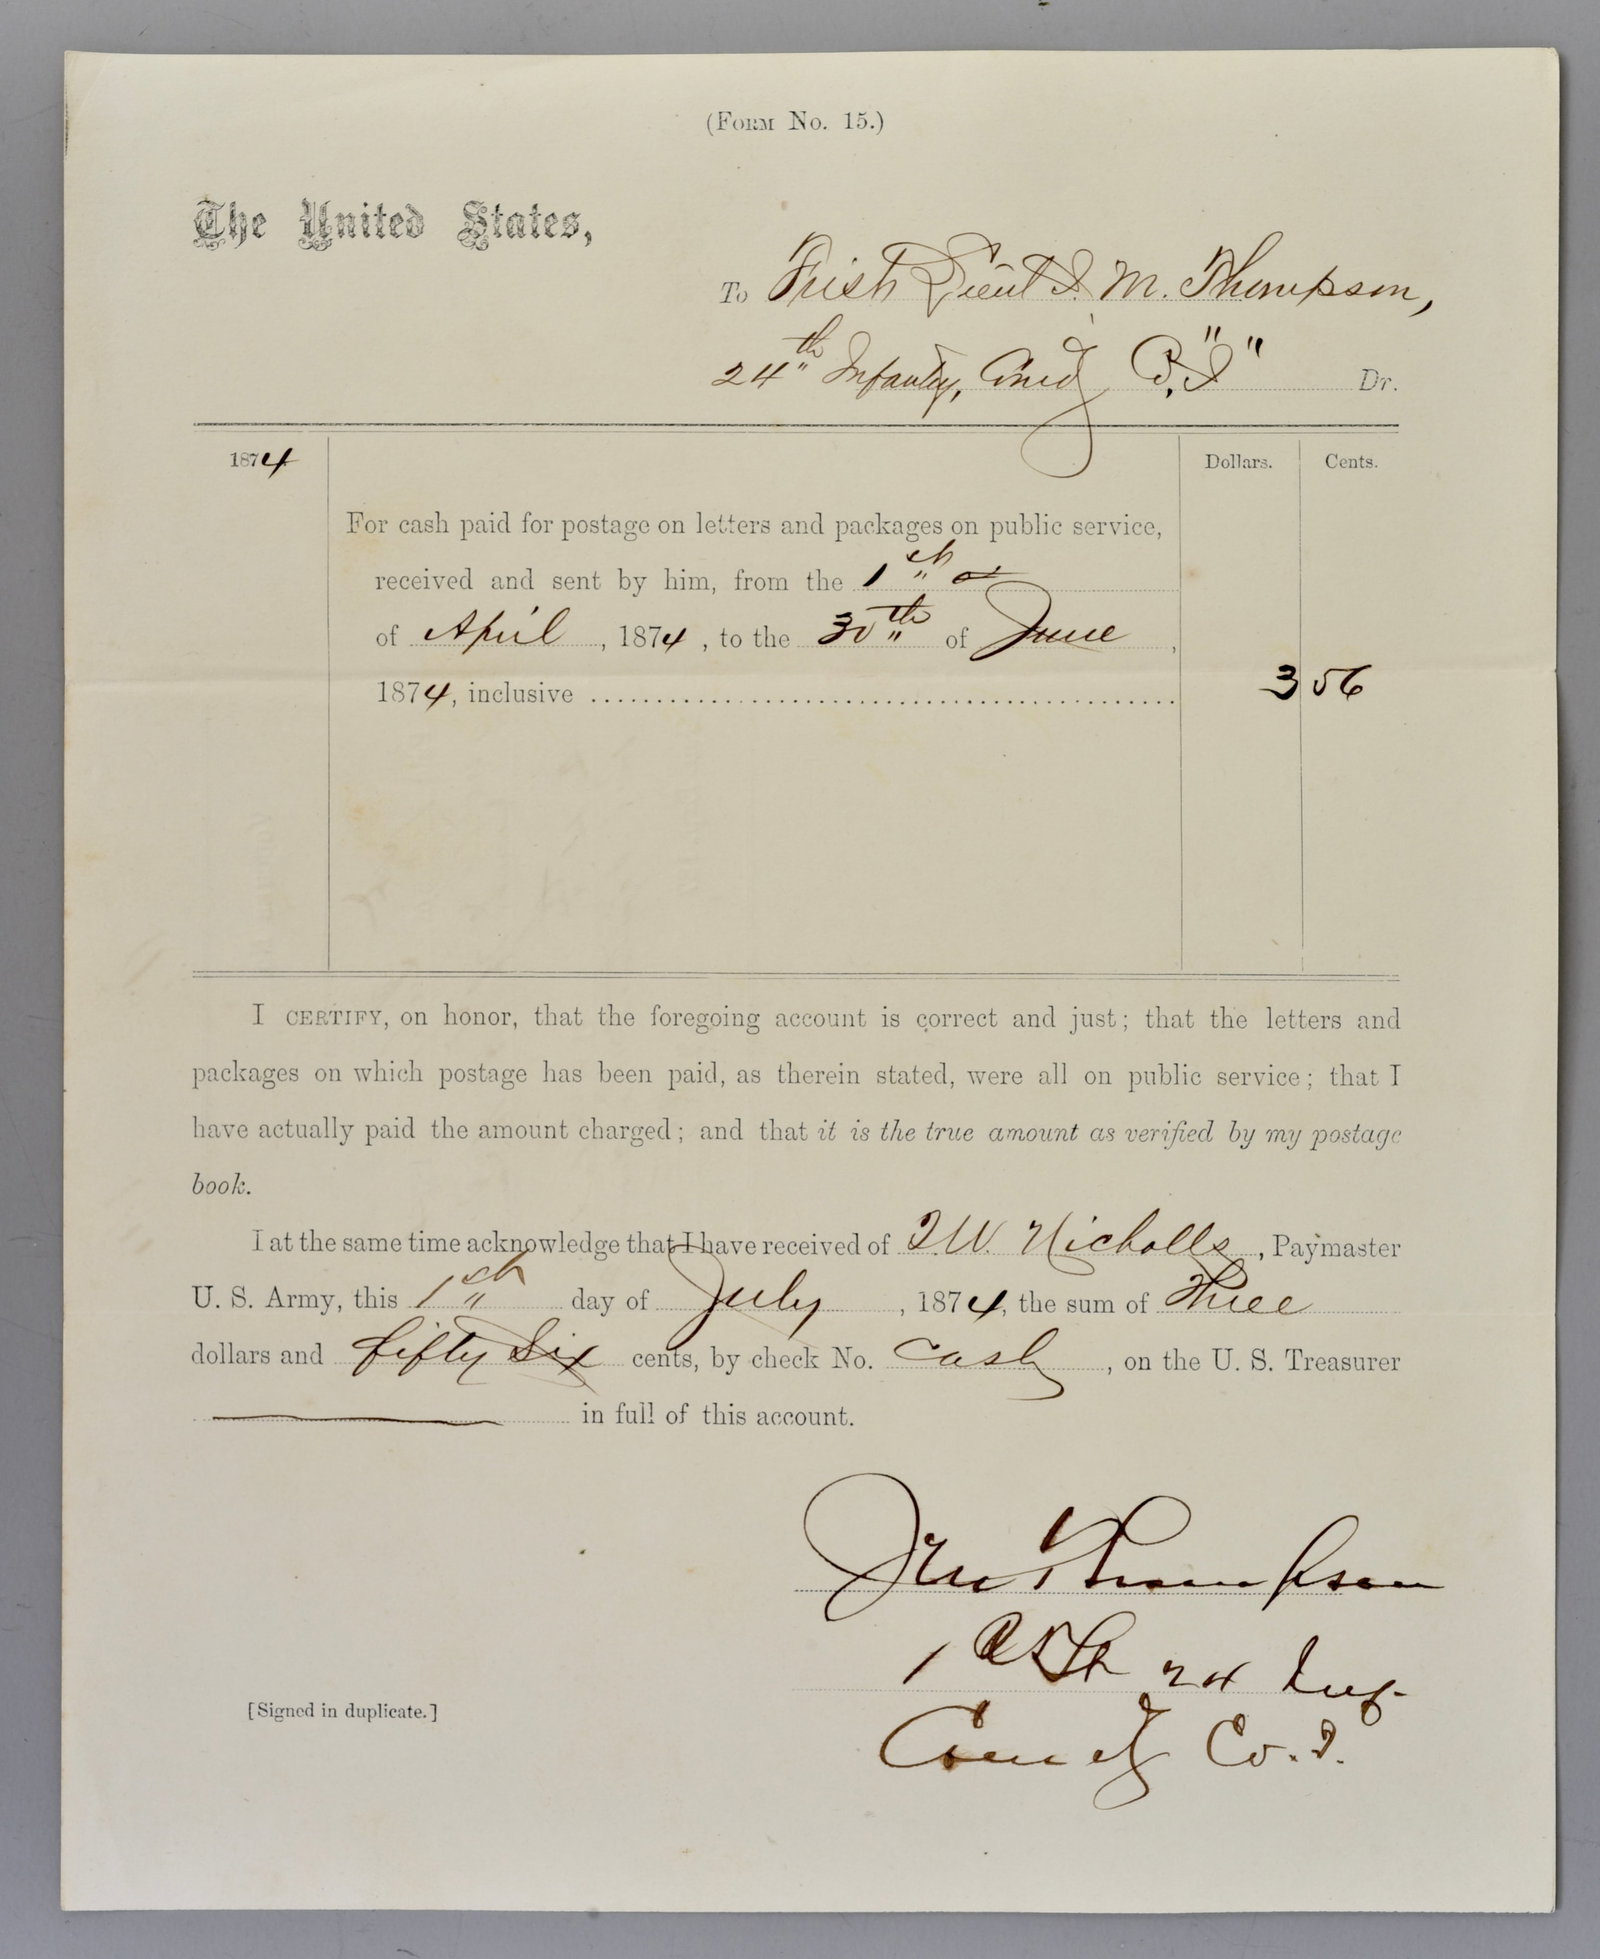 (FORM No. 15.)
The United States,
To First Lieut J. M. Thompson,
24th Infantry, Comd'g Co. "I" Dr.
1874 Dollars. Cents.
For cash paid for postage on letters and packages on public service,
received and sent by him, from the 1st
of April, 1874, to the 30th of June,
1874, inclusive 3 56
I CERTIFY, on honor, that the foregoing account is correct and just; that the letters and
packages on which postage has been paid, as therein stated, were all on public service; that I
have actually paid the amount charged; and that it is the true amount as verified by my postage
book.
I at the same time acknowledge that I have received of Nicholls, Paymaster
U. S. Army, this 1st day of July, 1874, the sum of Three
dollars and fifty Six cents, by check No. Cash, on the U. S. Treasurer
in full of this account.
J M Thompson
1st Lt 24 Inf
Comdg Co. I.
[Signed in duplicate.]